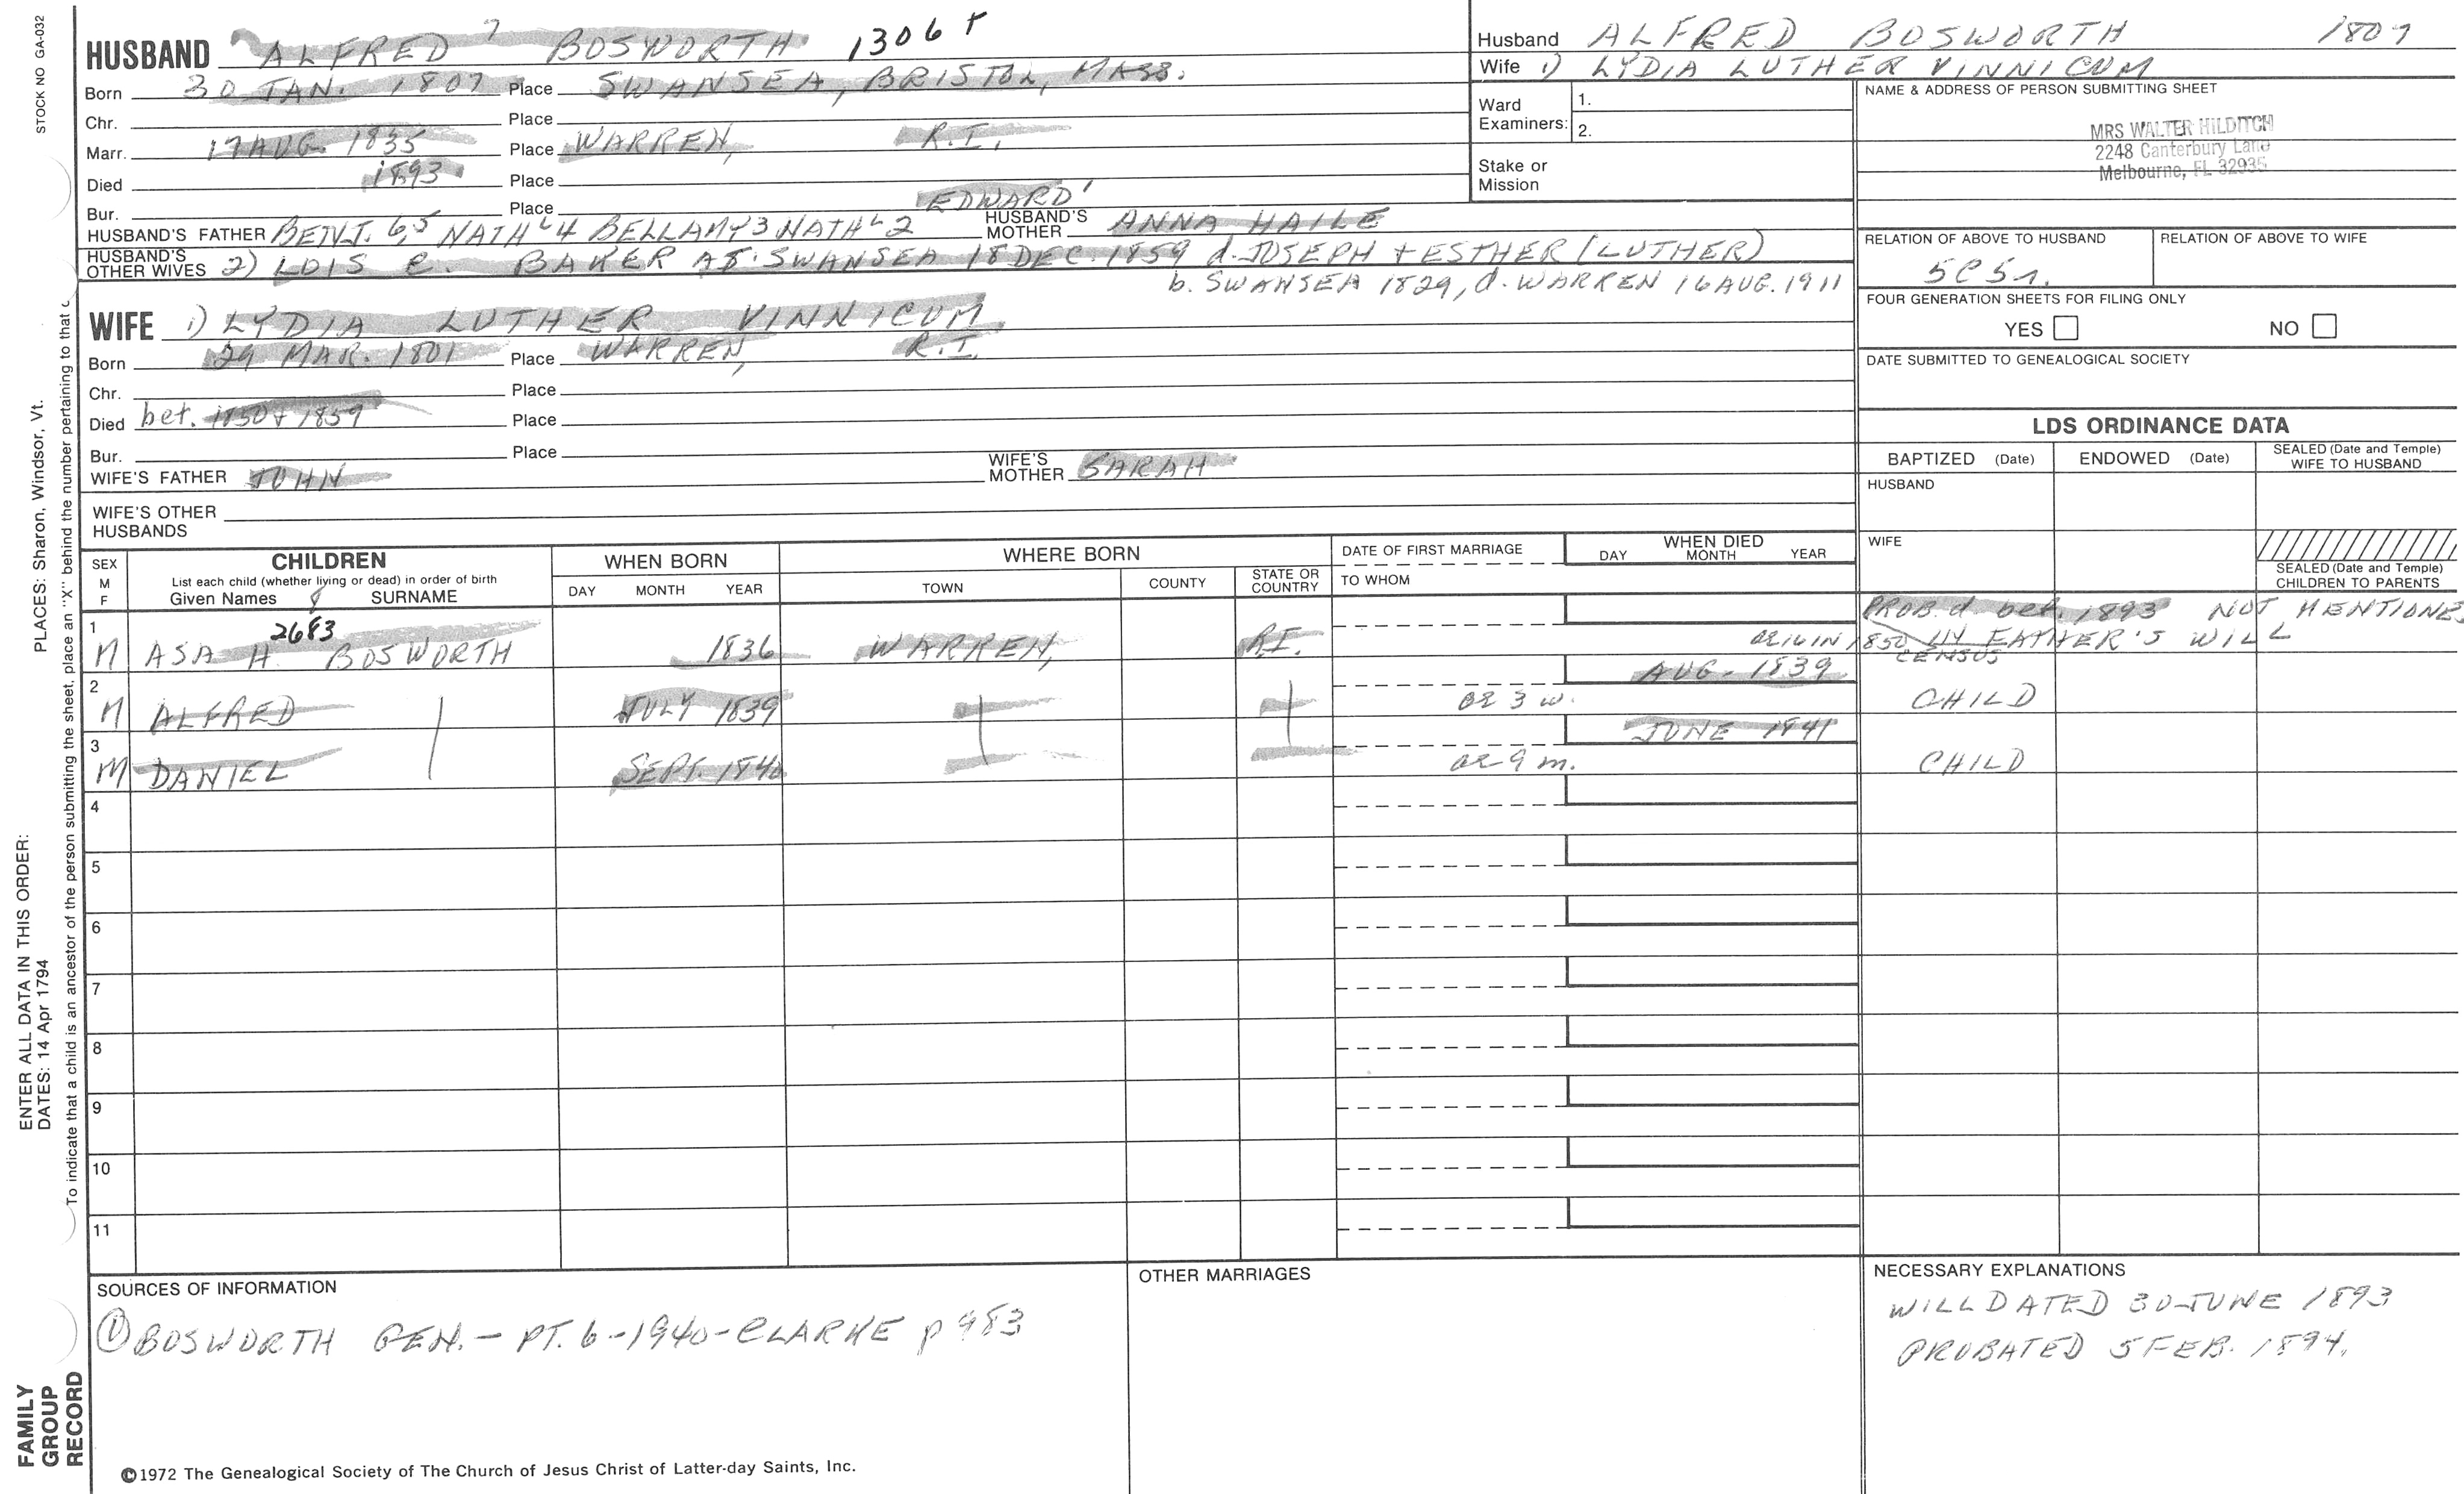 STOCK NO GA-032
HUSBAND ALFRED 7 BOSWORTH 1306 +
Born 30 JAN. 1807 Place SWANSEA, BRISTOL, MASS.
Chr. Place
Marr. 17 AUG. 1835 Place WARREN, R.I.
Died 1893 Place
Bur. Place
HUSBAND'S FATHER BENJ. 6,5 NATHL 4 BELLAMY 3 NATHL 2 EDWARD 1 HUSBAND'S MOTHER ANNA HAILE
HUSBAND'S OTHER WIVES 2) LOIS E. BAKER AT SWANSEA 18 DEC. 1859 d. JOSEPH + ESTHER (LUTHER)
b. SWANSEA 1829, d. WARREN 16 AUG. 1911
WIFE 1) LYDIA LUTHER VINNICUM
Born 29 MAR. 1801 Place WARREN, R.I.
Chr. Place
Died bet. 1850 + 1859 Place
Bur. Place
WIFE'S FATHER JOHN WIFE'S MOTHER SARAH
WIFE'S OTHER HUSBANDS
Husband ALFRED BOSWORTH 1807
Wife 1) LYDIA LUTHER VINNICUM
Ward Examiners: 1.
2.
Stake or Mission
NAME & ADDRESS OF PERSON SUBMITTING SHEET
MRS WALTER HILDITCH
2248 Canterbury Lane
Melbourne, FL 32935
RELATION OF ABOVE TO HUSBAND RELATION OF ABOVE TO WIFE
5C5r.
FOUR GENERATION SHEETS FOR FILING ONLY
YES NO
DATE SUBMITTED TO GENEALOGICAL SOCIETY
LDS ORDINANCE DATA
BAPTIZED (Date) ENDOWED (Date) SEALED (Date and Temple) WIFE TO HUSBAND
HUSBAND
WIFE
SEALED (Date and Temple) CHILDREN TO PARENTS
SEX M F CHILDREN WHEN BORN WHERE BORN DATE OF FIRST MARRIAGE WHEN DIED
List each child (whether living or dead) in order of birth
Given Names SURNAME DAY MONTH YEAR TOWN COUNTY STATE OR COUNTRY TO WHOM DAY MONTH YEAR
8
PROB. d. bef. 1893 NOT MENTIONED
1 M ASA H 2683 BOSWORTH 1836 WARREN, R.I. ae 16 IN 1850 CENSUS IN FATHER'S WILL
2 M ALFRED JULY 1839 AUG. 1839 ae 3 w. CHILD
3 M DANIEL SEPT. 1840 JUNE 1841 ae 9 m. CHILD
4
5
6
7
8
9
10
11
SOURCES OF INFORMATION
① BOSWORTH GEN. - PT. 6 - 1940 - CLARKE p 983
OTHER MARRIAGES
NECESSARY EXPLANATIONS
WILL DATED 30 JUNE 1893
PROBATED 5 FEB. 1894.
©1972 The Genealogical Society of The Church of Jesus Christ of Latter-day Saints, Inc.
FAMILY
GROUP
RECORD
ENTER ALL DATA IN THIS ORDER:
DATES: 14 Apr 1794
PLACES: Sharon, Windsor, Vt.
To indicate that a child is an ancestor of the person submitting the sheet, place an "X" behind the number pertaining to that c